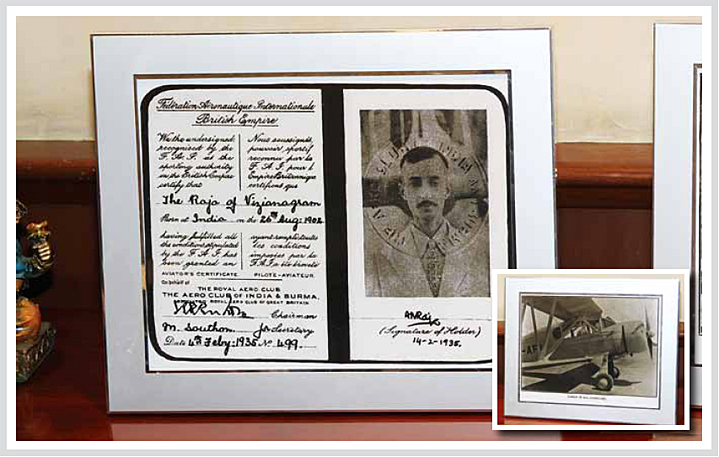 Fédération Aéronautique Internationale
British Empire
We the undersigned
recognised by the
F. A. I. as the
sporting authority
in the British Empire
certify that
Nous soussignés,
pouvoir sportif
reconnu par la
F. A. I. pour l'
Empire Britannique
certifions que
The Raja of Vizianagram
Born at India on the 26th Aug: 1902
having fulfilled all
the conditions stipulated
by the F.A.I. has
been granted an
ayant rempli toutes
les conditions
imposées par la
F.A.I. a été breveté
AVIATOR'S CERTIFICATE
PILOTE-AVIATEUR
On behalf of
THE ROYAL AERO CLUB
THE AERO CLUB OF INDIA & BURMA.
ROYAL AERO CLUB OF GREAT BRITAIN
Chairman
M. Southorn Secretary
Date 4th Feby: 1935 No. 499.
INDIA
(Signature of Holder)
14-2-1935.